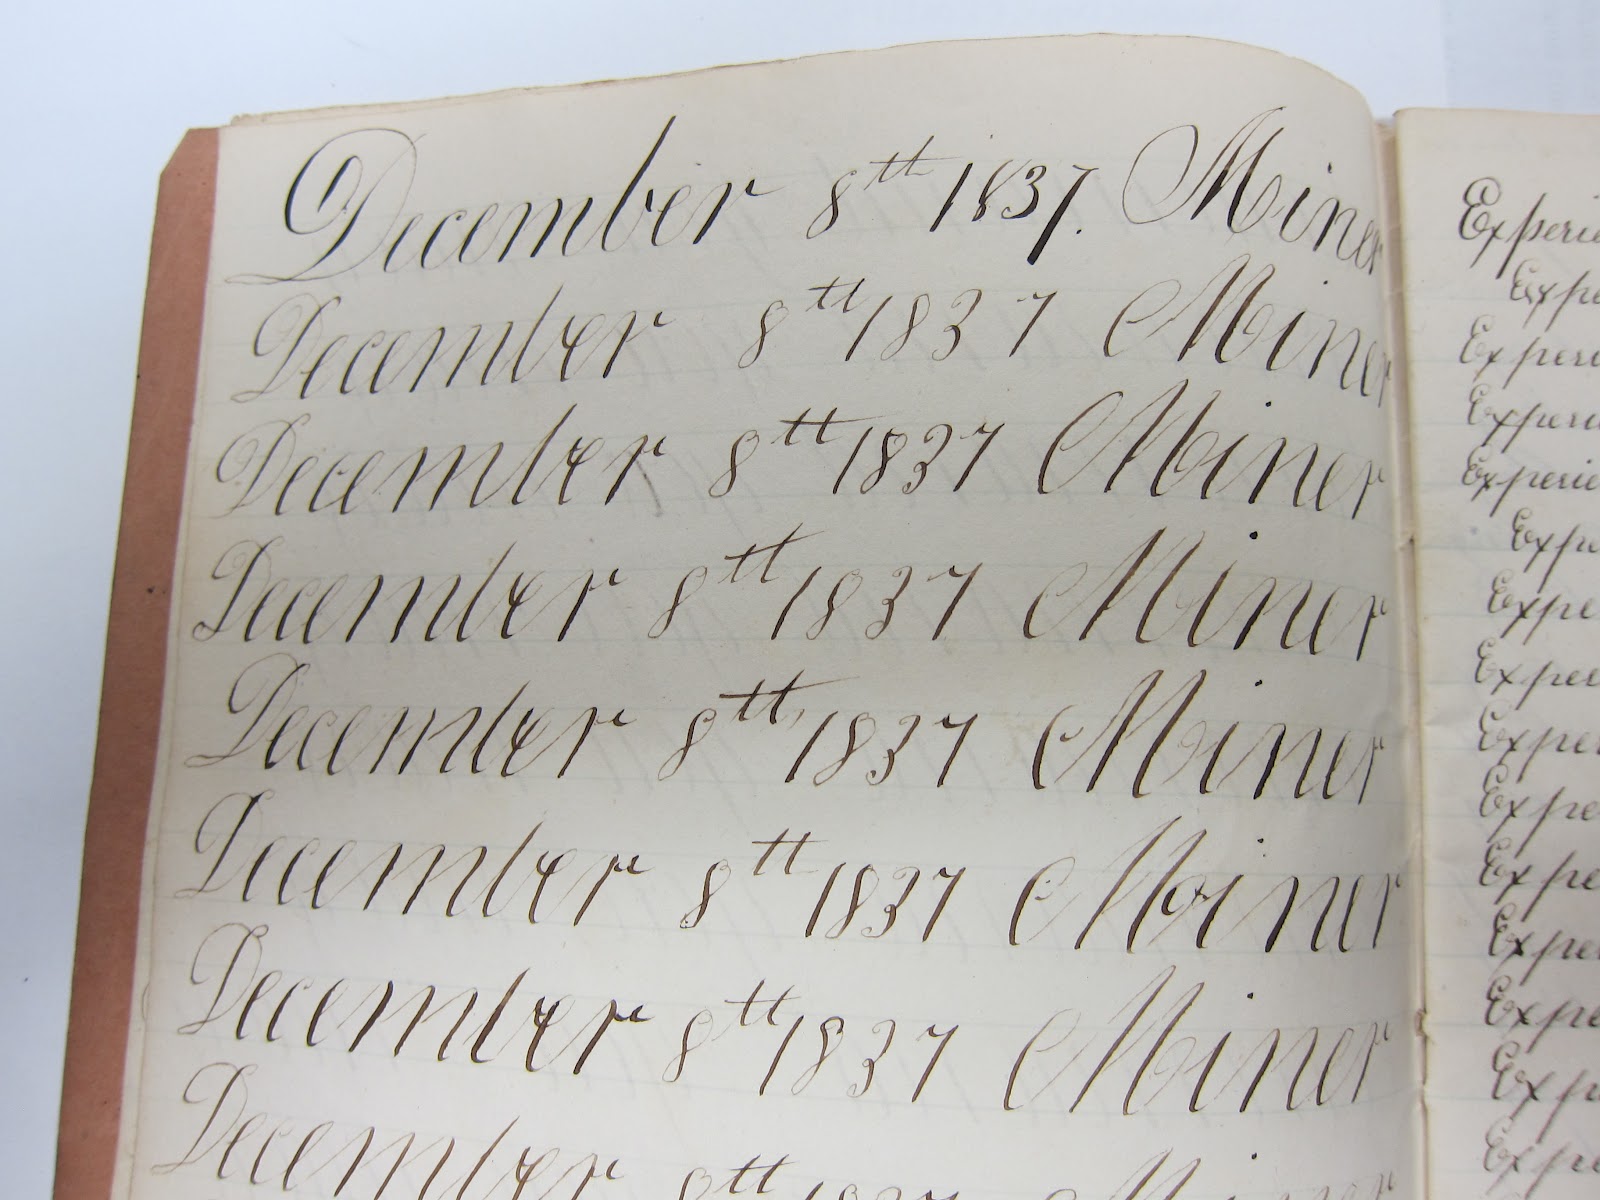 December 8th 1837. Miner
December 8th 1837 Miner
December 8th 1837 Miner
December 8th 1837 Miner
December 8th 1837 Miner
December 8th 1837 Miner
December 8th 1837 Miner
December 8th 1837 Miner
Experie
Expe
Experi
Experi
Experie
Expe
Expe
Exper
Exper
Expe
Expe
Expe
Expe
Expe
Expe